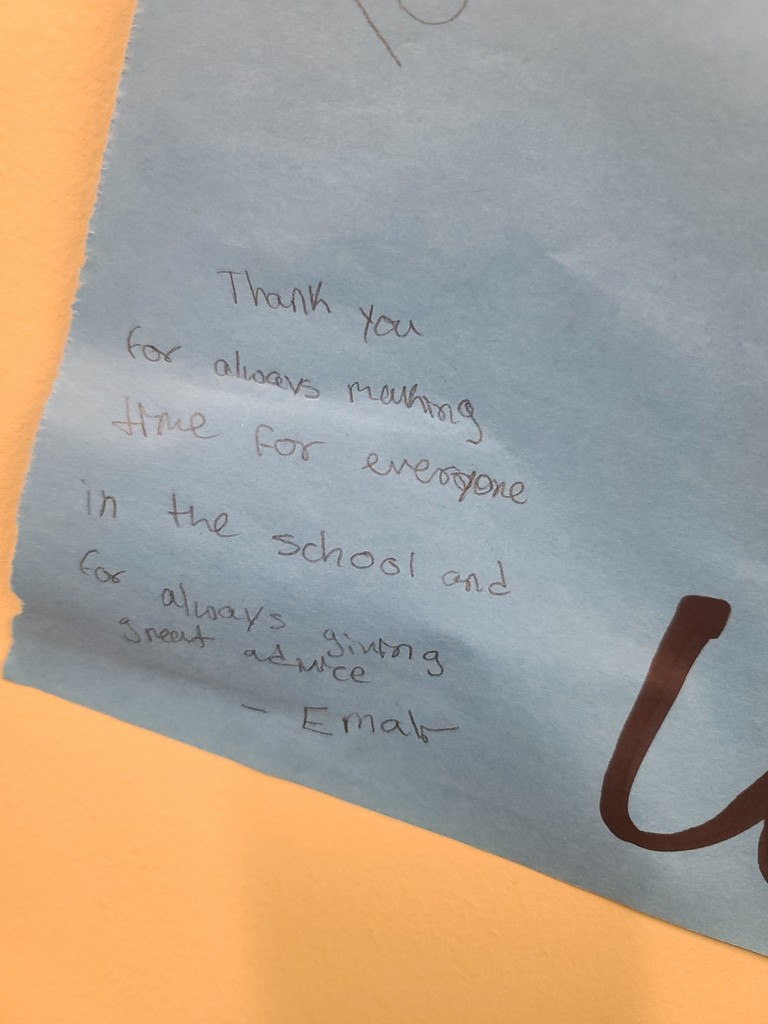 Thank you
for always making
time for everyone
in the school and
for always giving
great advice